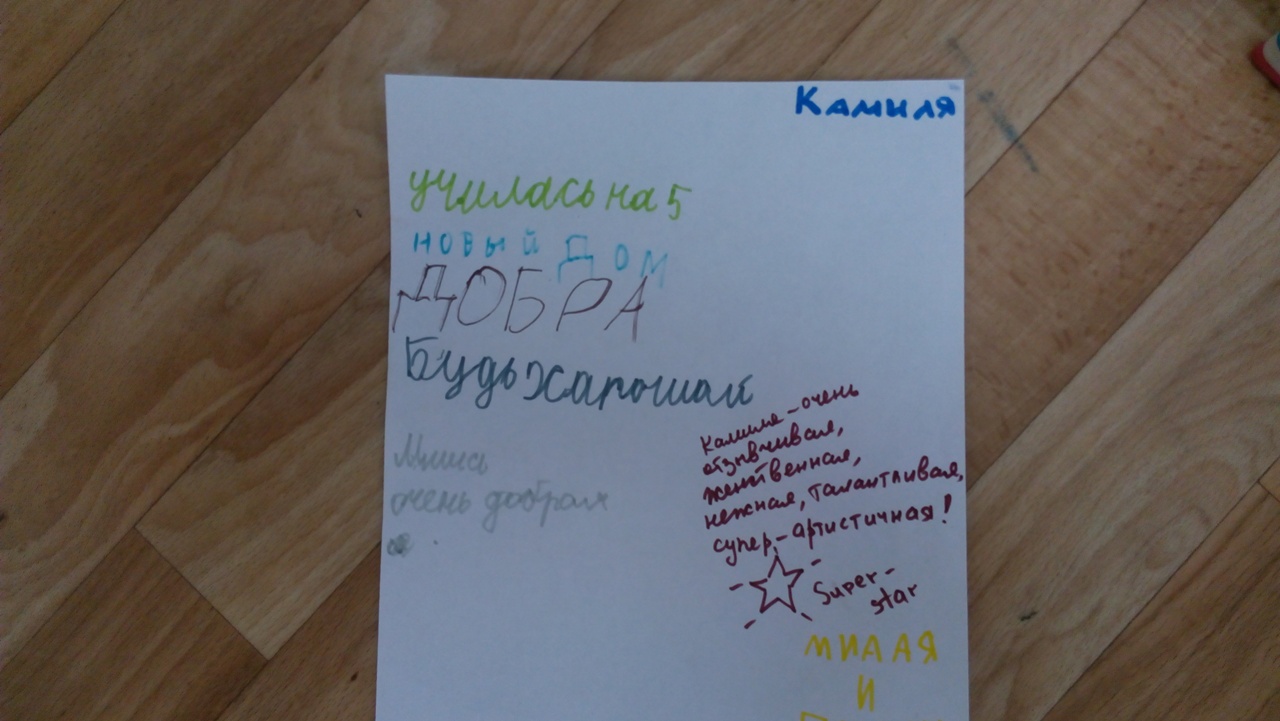 Камиля
училась на 5
новый Дом
ДОБРА
Будь харошай
очень добрая
Камиля - очень
отзывчивая,
женственная,
нежная, талантливая,
супер-артистичная!
Super-
star
МИЛАЯ
И